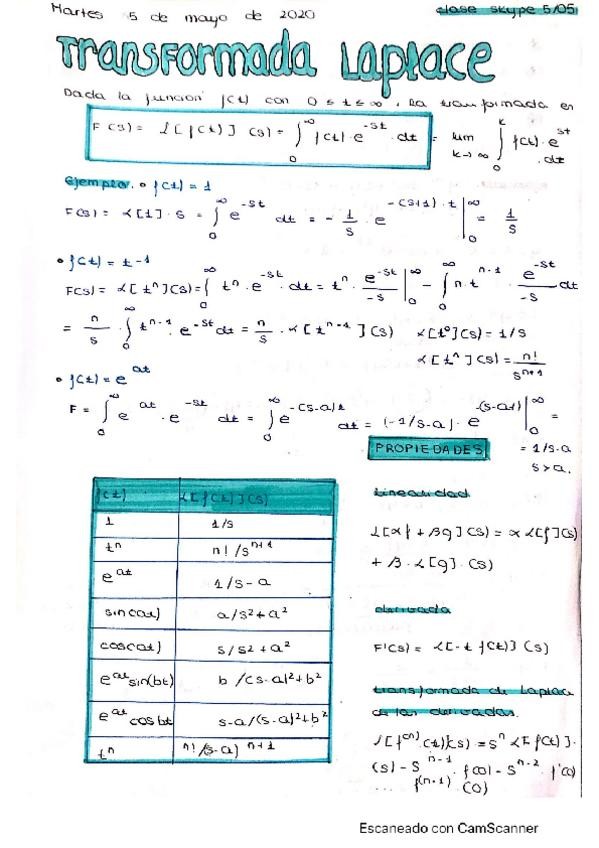 Martes 5 de mayo de 2020
clase skype 5/05
Transformada Laplace
Dada la función f(t) con 0 ≤ t ≤ ∞, la transformada es
F(s) = L[f(t)](s) = ∫₀^∞ f(t)·e^-st·dt = lim k→∞ ∫₀^k f(t)·e^st·dt
Ejemplo. • f(t) = 1
F(s) = L[1]·s = ∫₀^∞ e^-st dt = - 1/s · e^-(s+1)·t |₀^∞ = 1/s
• f(t) = t-1
F(s) = L[t^n](s) = ∫₀^∞ t^n·e^-st·dt = t^n · e^-st/-s |₀^∞ - ∫₀^∞ n·t^n-1 · e^-st/-s dt
= n/s · ∫₀^∞ t^n-1·e^-st dt = n/s · L[t^n-1](s) L[t^0](s) = 1/s
L[t^n](s) = n!/s^n+1
• f(t) = e^at
F = ∫₀^∞ e^at · e^-st dt = ∫₀^∞ e^-(s-a)t dt = (-1/s-a) · e^-(s-a) |₀^∞ =
= 1/s-a
s>a.
f(t) L[f(t)](s)
1 1/s
t^n n!/s^n+1
e^at 1/s-a
sin(at) a/s²+a²
cos(at) s/s²+a²
e^at sin(bt) b/(s-a)²+b²
e^at cos bt s-a/(s-a)²+b²
t^n n!/(s-a)^n+1
PROPIEDADES
Linealidad
L[αf + βg](s) = α L[f](s)
+ β·L[g]·(s)
derivada
F'(s) = L[-t f(t)](s)
transformada de Laplace
de las derivadas.
L[f^(n)(t)](s) = s^n L[f(t)]·
(s) - s^n-1·f(0) - s^n-2·f'(0)
... f^(n-1)(0)
Escaneado con CamScanner